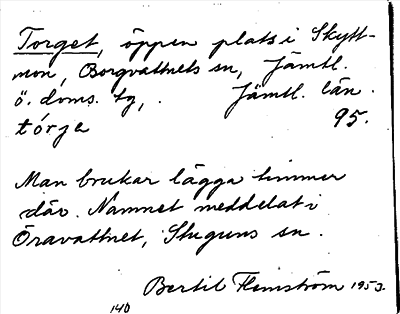 Torget, öppen plats i Skytt-
mon, Borgvattnets sn, Jämtl.
ö. doms. tg, . Jämtl. län.
tórje 95.
Man brukar lägga timmer
där. Namnet meddelat i
Öravattnet, Stuguns sn.
Bertil Flemström 1953.
140